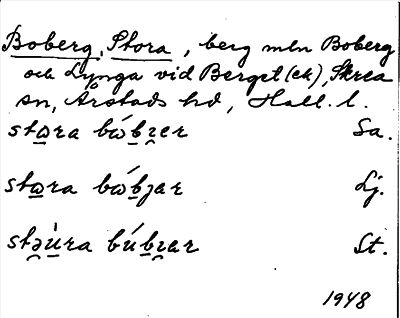 Boberg, Stora, berg mln Boberg
och Lynga vid Berget (ek), Skrea
sn, Årstads hd, Hall. l.
stꞷra bꞷ́bɀer Sa.
stꞷra bꞷ́bȷar Lj.
stəùra búbɀar St.
1948